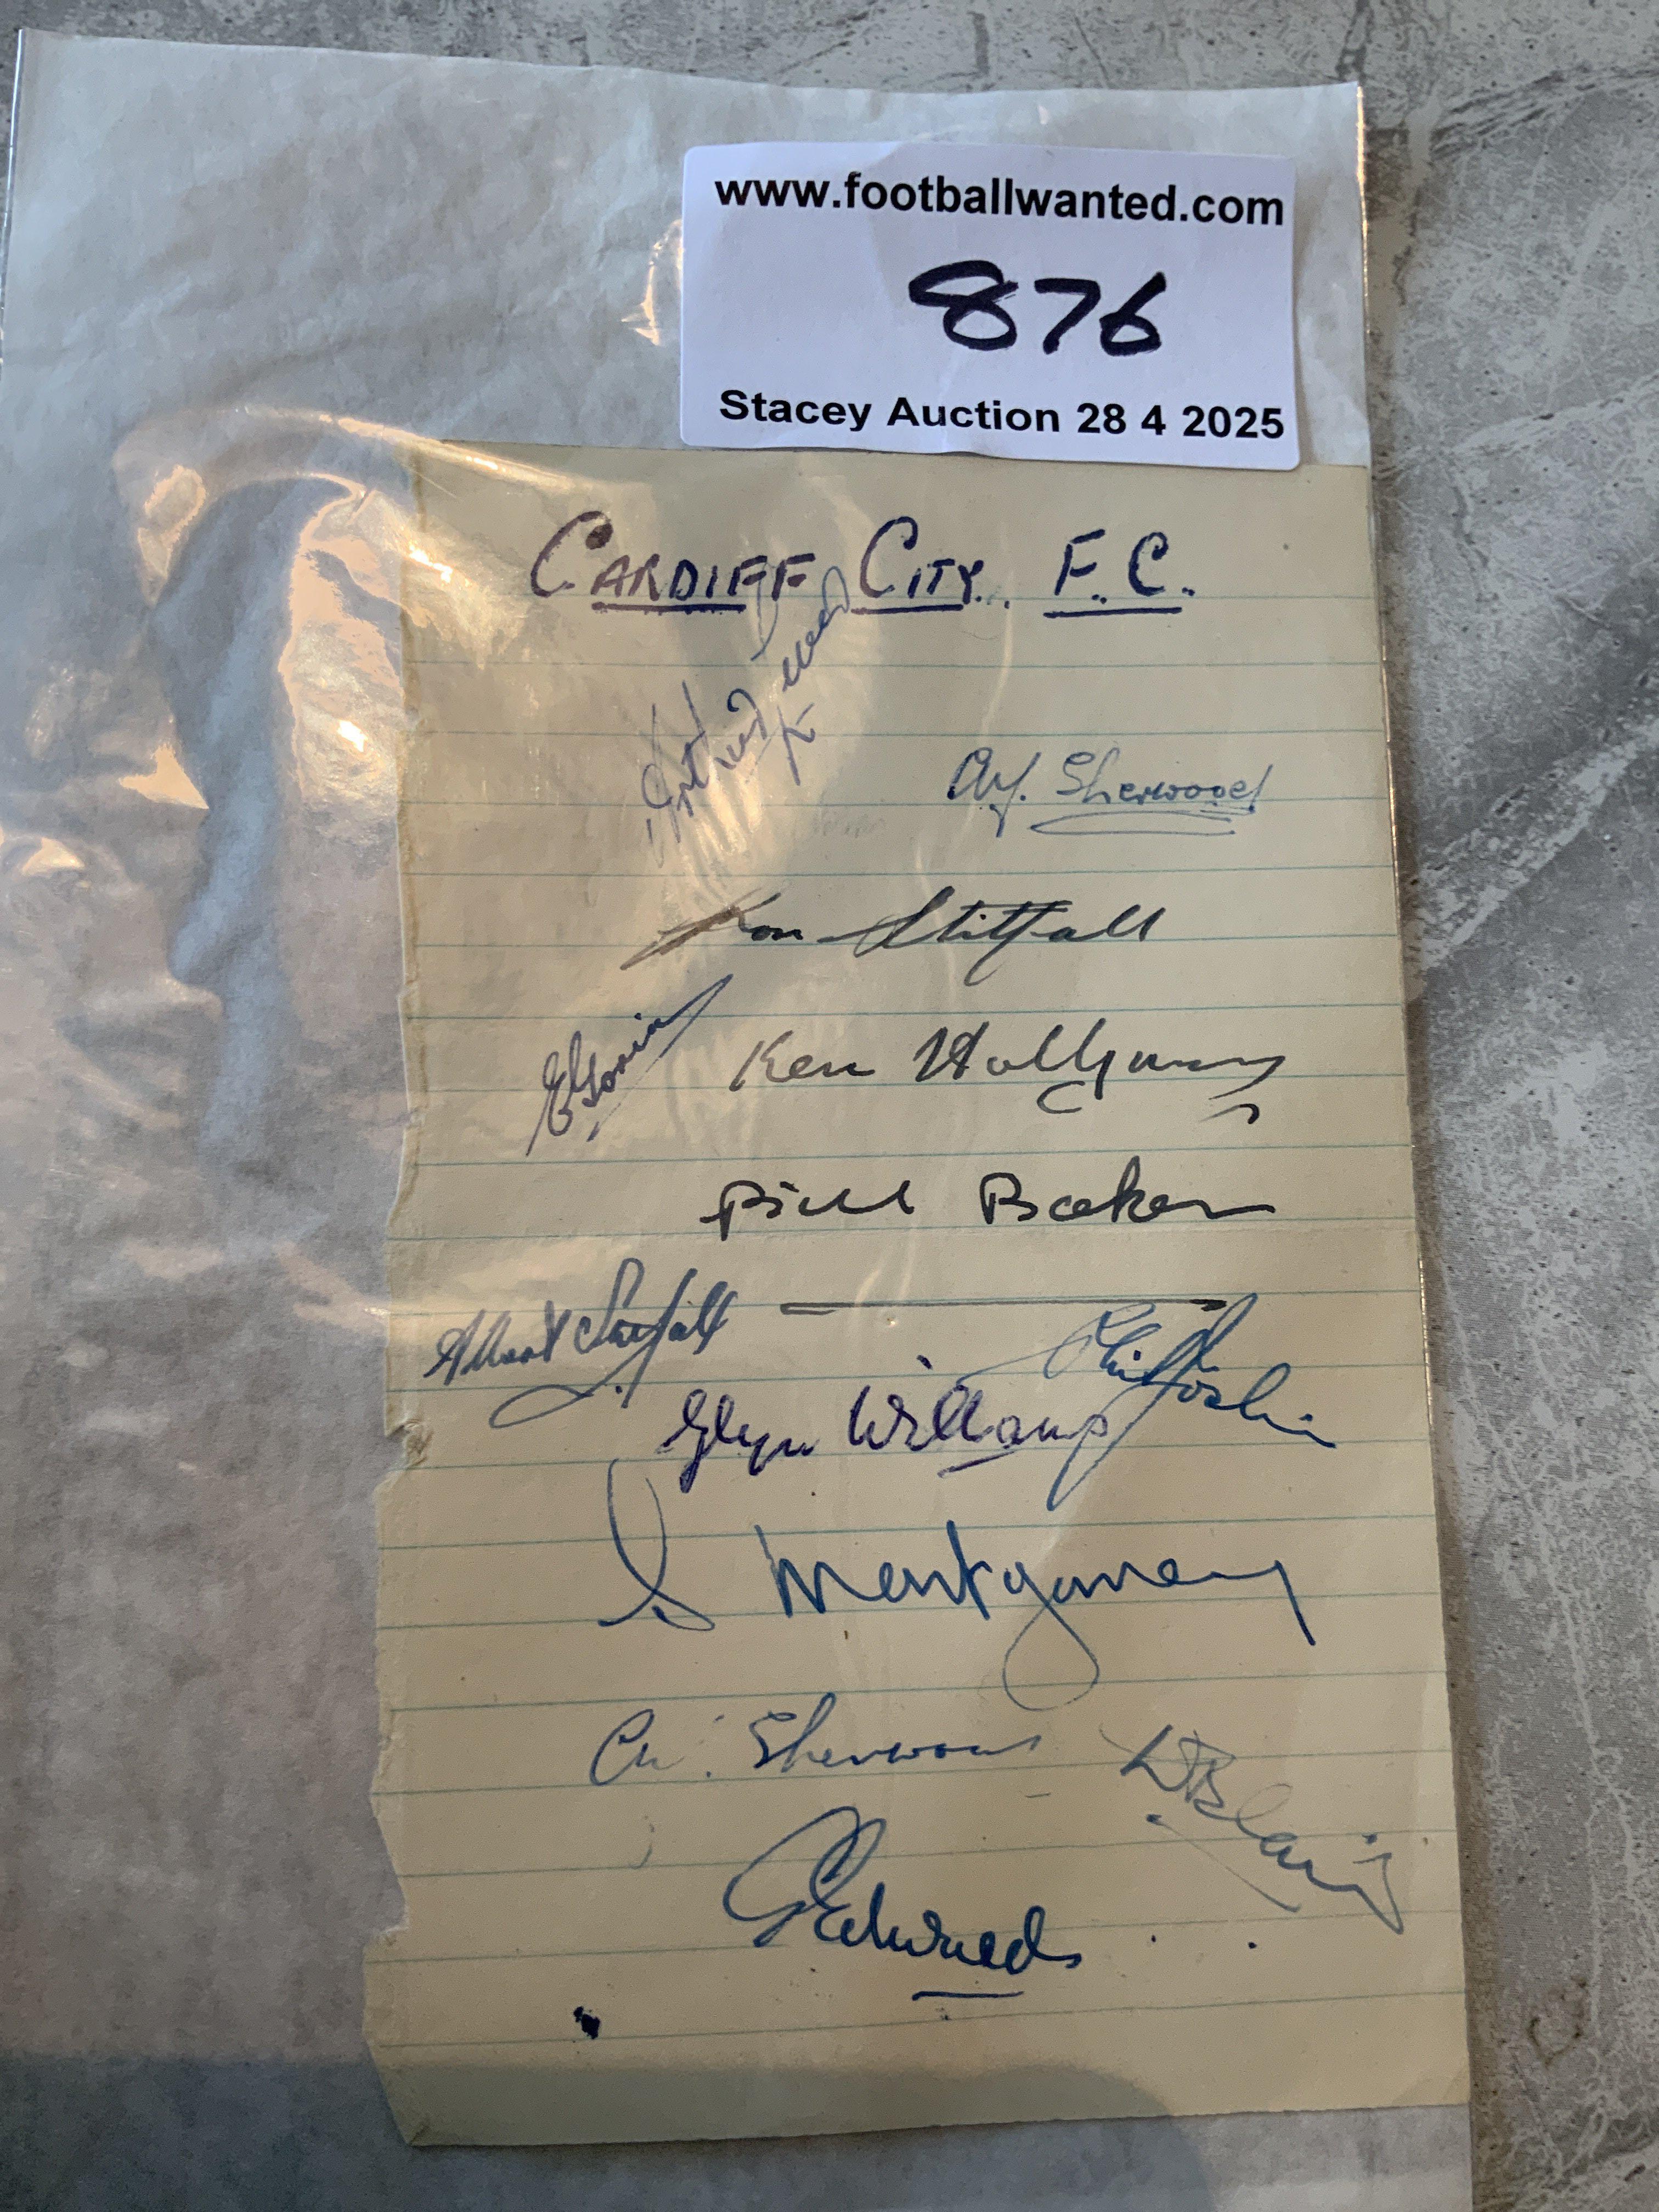 www.footballwanted.com
876
Stacey Auction 28 4 2025
CARDIFF CITY. F.C.
Arthur Lever
Alf. Sherwood
Ron Stitfall
EGorin
Ken Hollyman
Bill Baker
Albert Stitfall
Phil Joslin
Glyn Williams
S Montgomery
Sherwood
D Blair
G Edwards